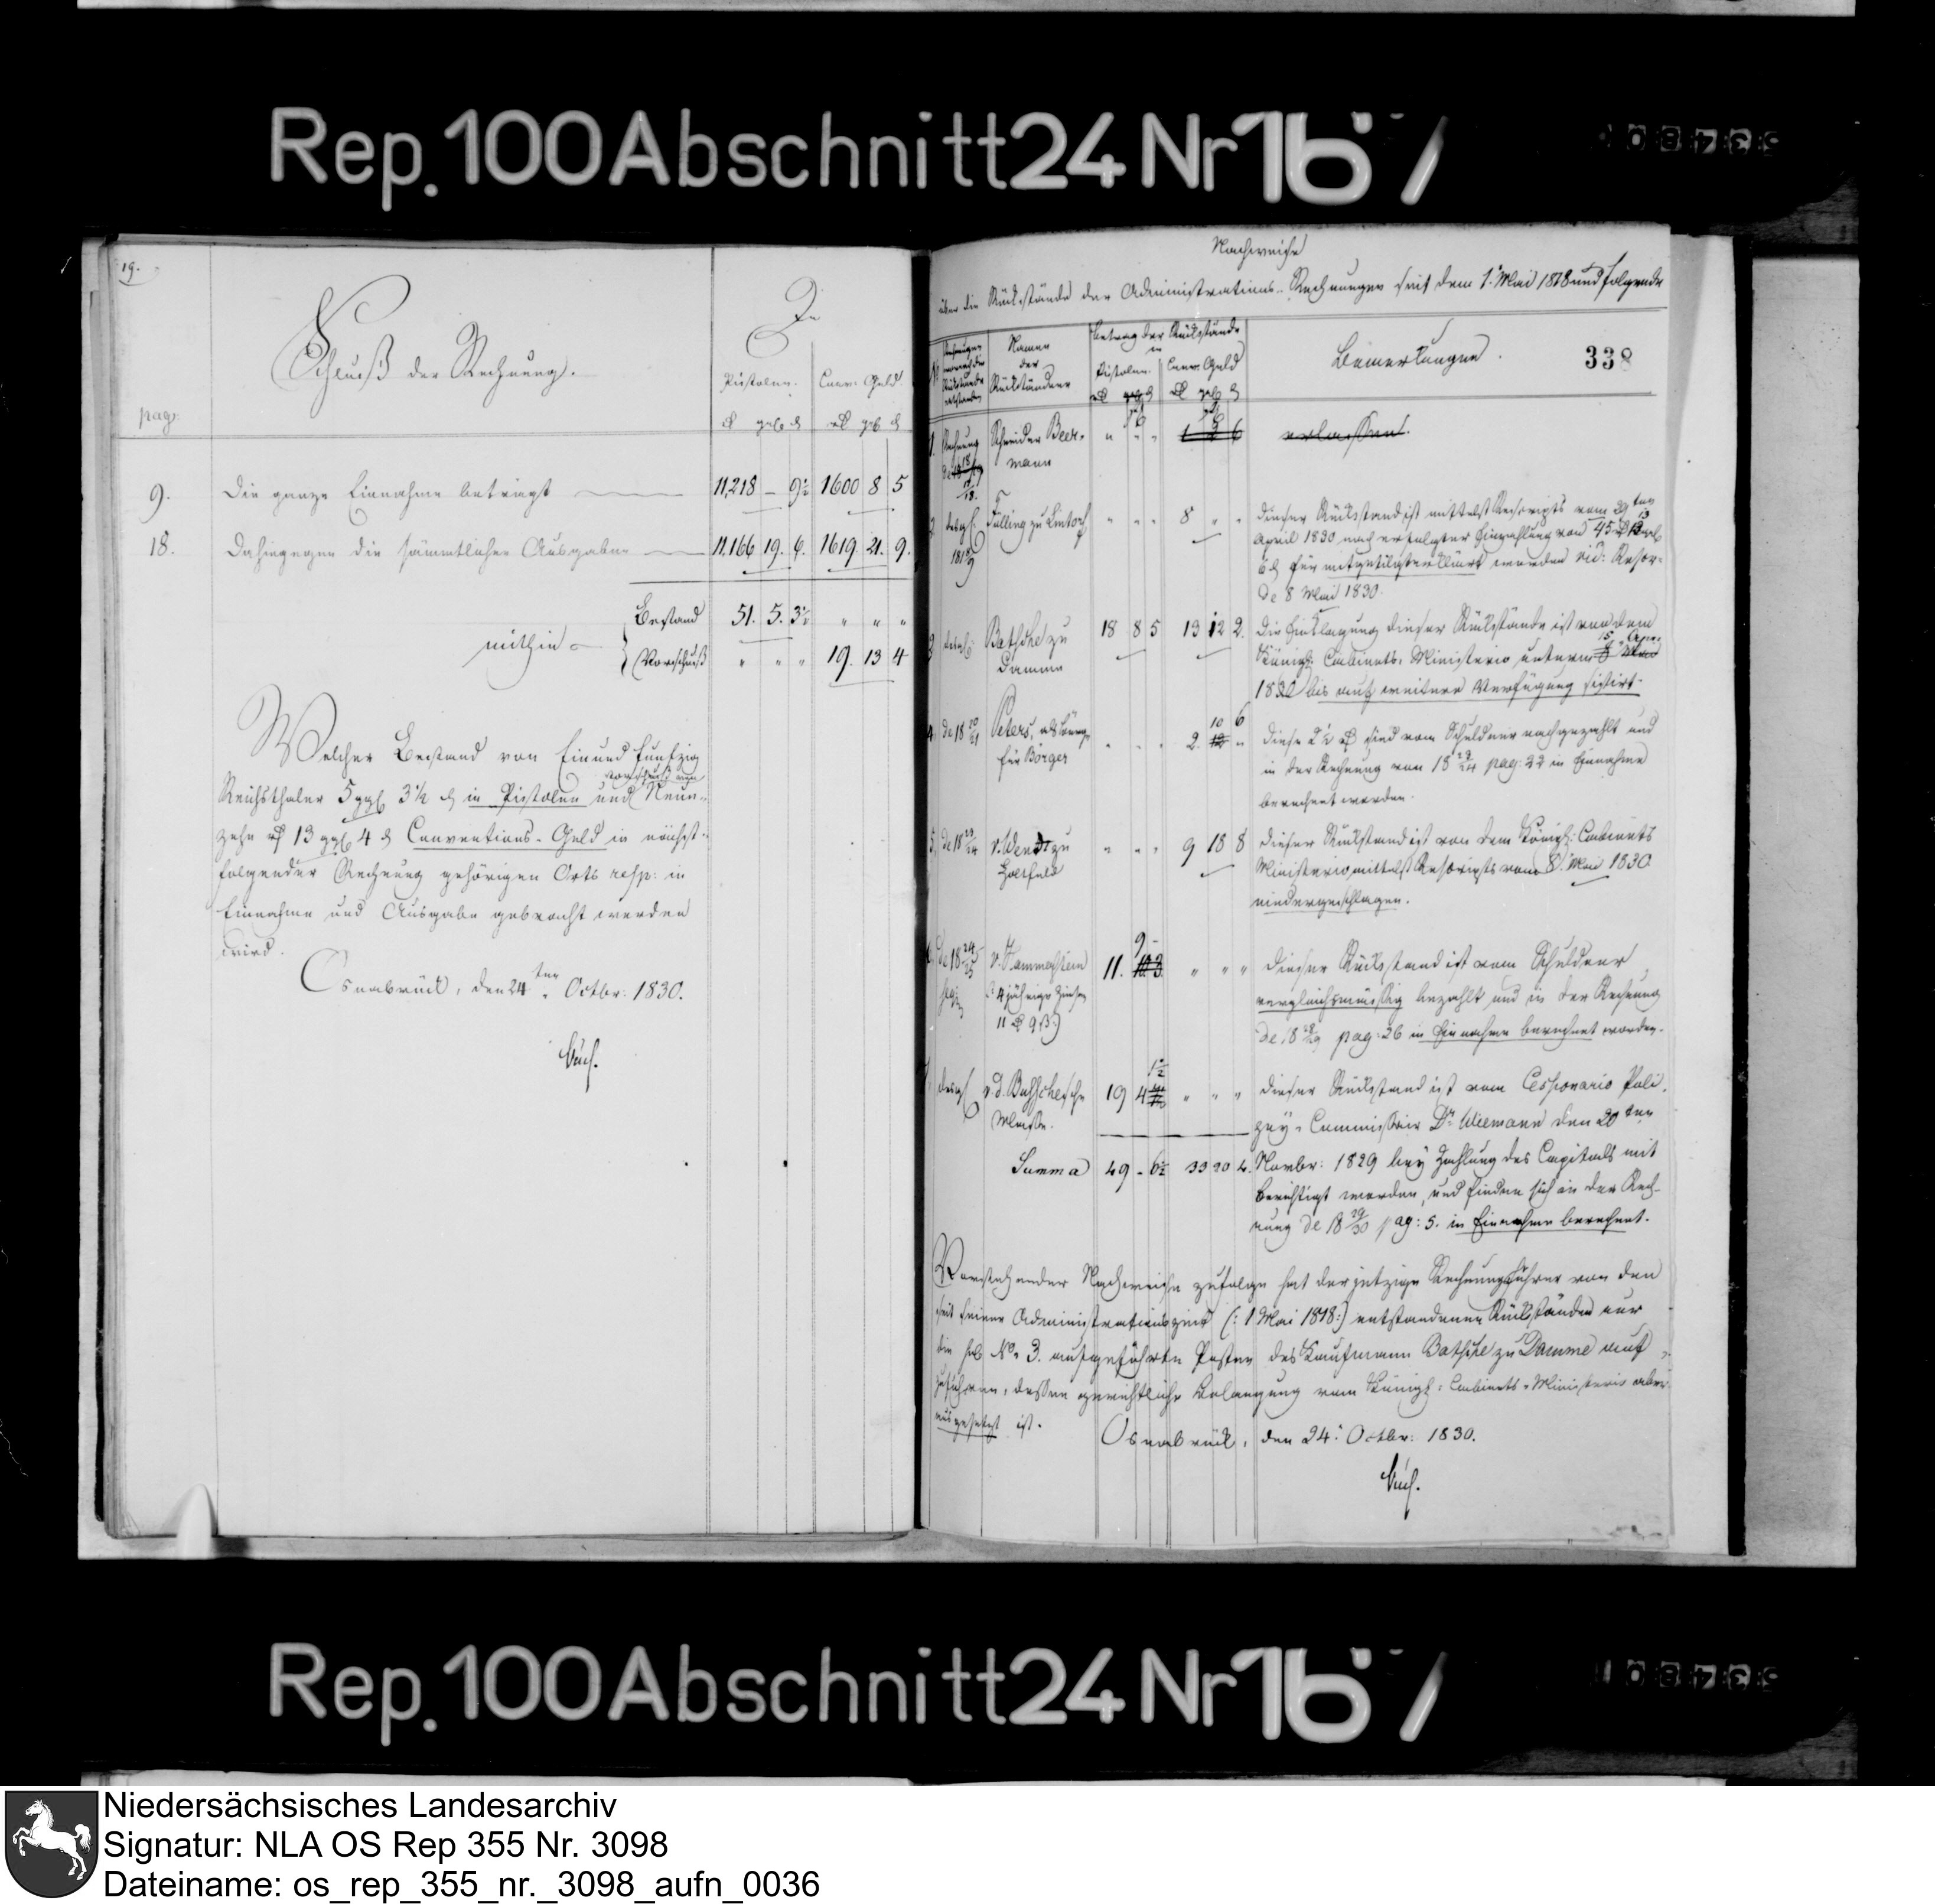 Rep. 100 Abschnitt 24 Nr 167
19.
Schluß der Rechnung.
In
Pistolen. Conv: Geld.
pag:
rß ggr ₰ rß ggr ₰
9. Die ganze Einnahme beträgt 11,218 — 9½ 1600 8 5
18. Dahingegen die sämmtlichen Ausgaben 11,166 19. 6. 1619. 21. 9.
mithin
Bestand 51. 5. 3½ " " "
Vorschuß " " " 19. 13 4
Welcher Bestand von Ein und funfzig
Vorschuß von
Reichsthaler 5 ggr 3½ ₰ in Pistolen und Neun-
zehn rß 13 ggr 4 ₰ Conventions-Geld in nächst-
folgender Rechnung gehörigen Orts resp: in
Einnahme und Ausgabe gebracht werden
wird.
Osnabrück, den 24ten Octbr: 1830.
Nachweise
über die Rückstände der Administrations-Rechnungen seit dem 1. Mai 1818 und folgende
338
Namen der Rückständner
Betrag der Rückstände in
Pistolen. Conv: Geld
Bemerkungen.
1. Rechnung Schneider Beermann " " " 1 6 erlassen.
2. desgl. 1818/9 Fülling zu Lintorf " " " 8 " "
dieser Rückstand ist mittelst Rescripts vom 29ten
April 1830 nach erfolgter Einzahlung von 45 rß 13
6 ₰ für mitgetilgt erklärt worden vid: Rescr:
de 8 Mai 1830.
3 desgl: Bathske zu Damme 18 8 5 13 12 2.
Die Einklagung dieser Rückstände ist von dem
Königl: Cabinets-Ministerio unterm 15 Apr.
1830 bis auf weitere Verfügung sistirt.
4. de 1820/21 Peters, als Bürge für Börger " " " 2. 10 6
diese 2½ rß sind vom Schuldner nachgezahlt und
in der Rechnung von 1823/24 pag: 22 in Einnahme
berechnet worden.
5. de 1823/24 v. Wendt zu Holtfeld " " " 9 18 8
dieser Rückstand ist von dem Königl: Cabinets
Ministerio mittelst Rescripts vom 8. Mai 1830
niedergeschlagen.
de 1824/25 v. Hammerstein 11. 9 - " " "
(: 4 jährige Zinsen
11 rß 9 ß:)
dieser Rückstand ist vom Schuldner
vergleichsmässig bezahlt und in der Rechnung
de 1828/29 pag: 26 in Einnahme berechnet worden.
desgl v. d. Busschesche Masse. 19 4 1½ " " "
dieser Rückstand ist vom Cessionario Poli-
zey-Commissair Dr. Wiemann den 20ten
Novbr: 1829 bey Zahlung des Capitals mit
berichtigt worden, und finden sich in der Rech-
nung de 1829/30 pag: 5. in Einnahme berechnet.
Summa 49 - 6½ 33 20 4.
Vorstehender Nachweise zufolge hat der jetzige Rechnungsführer von den
seit seiner Administrationszeit (: 1 Mai 1818:) entstandenen Rückständen nur
die sub No. 3. aufgeführten Posten des Kaufmann Bathske zu Damme auf-
zuführen, dessen gerichtliche Belangung vom Königl: Cabinets-Ministerio aber
ausgesetzt ist.
Osnabrück, den 24. Octbr: 1830.
Rep. 100 Abschnitt 24 Nr 167
Niedersächsisches Landesarchiv
Signatur: NLA OS Rep 355 Nr. 3098
Dateiname: os_rep_355_nr._3098_aufn_0036